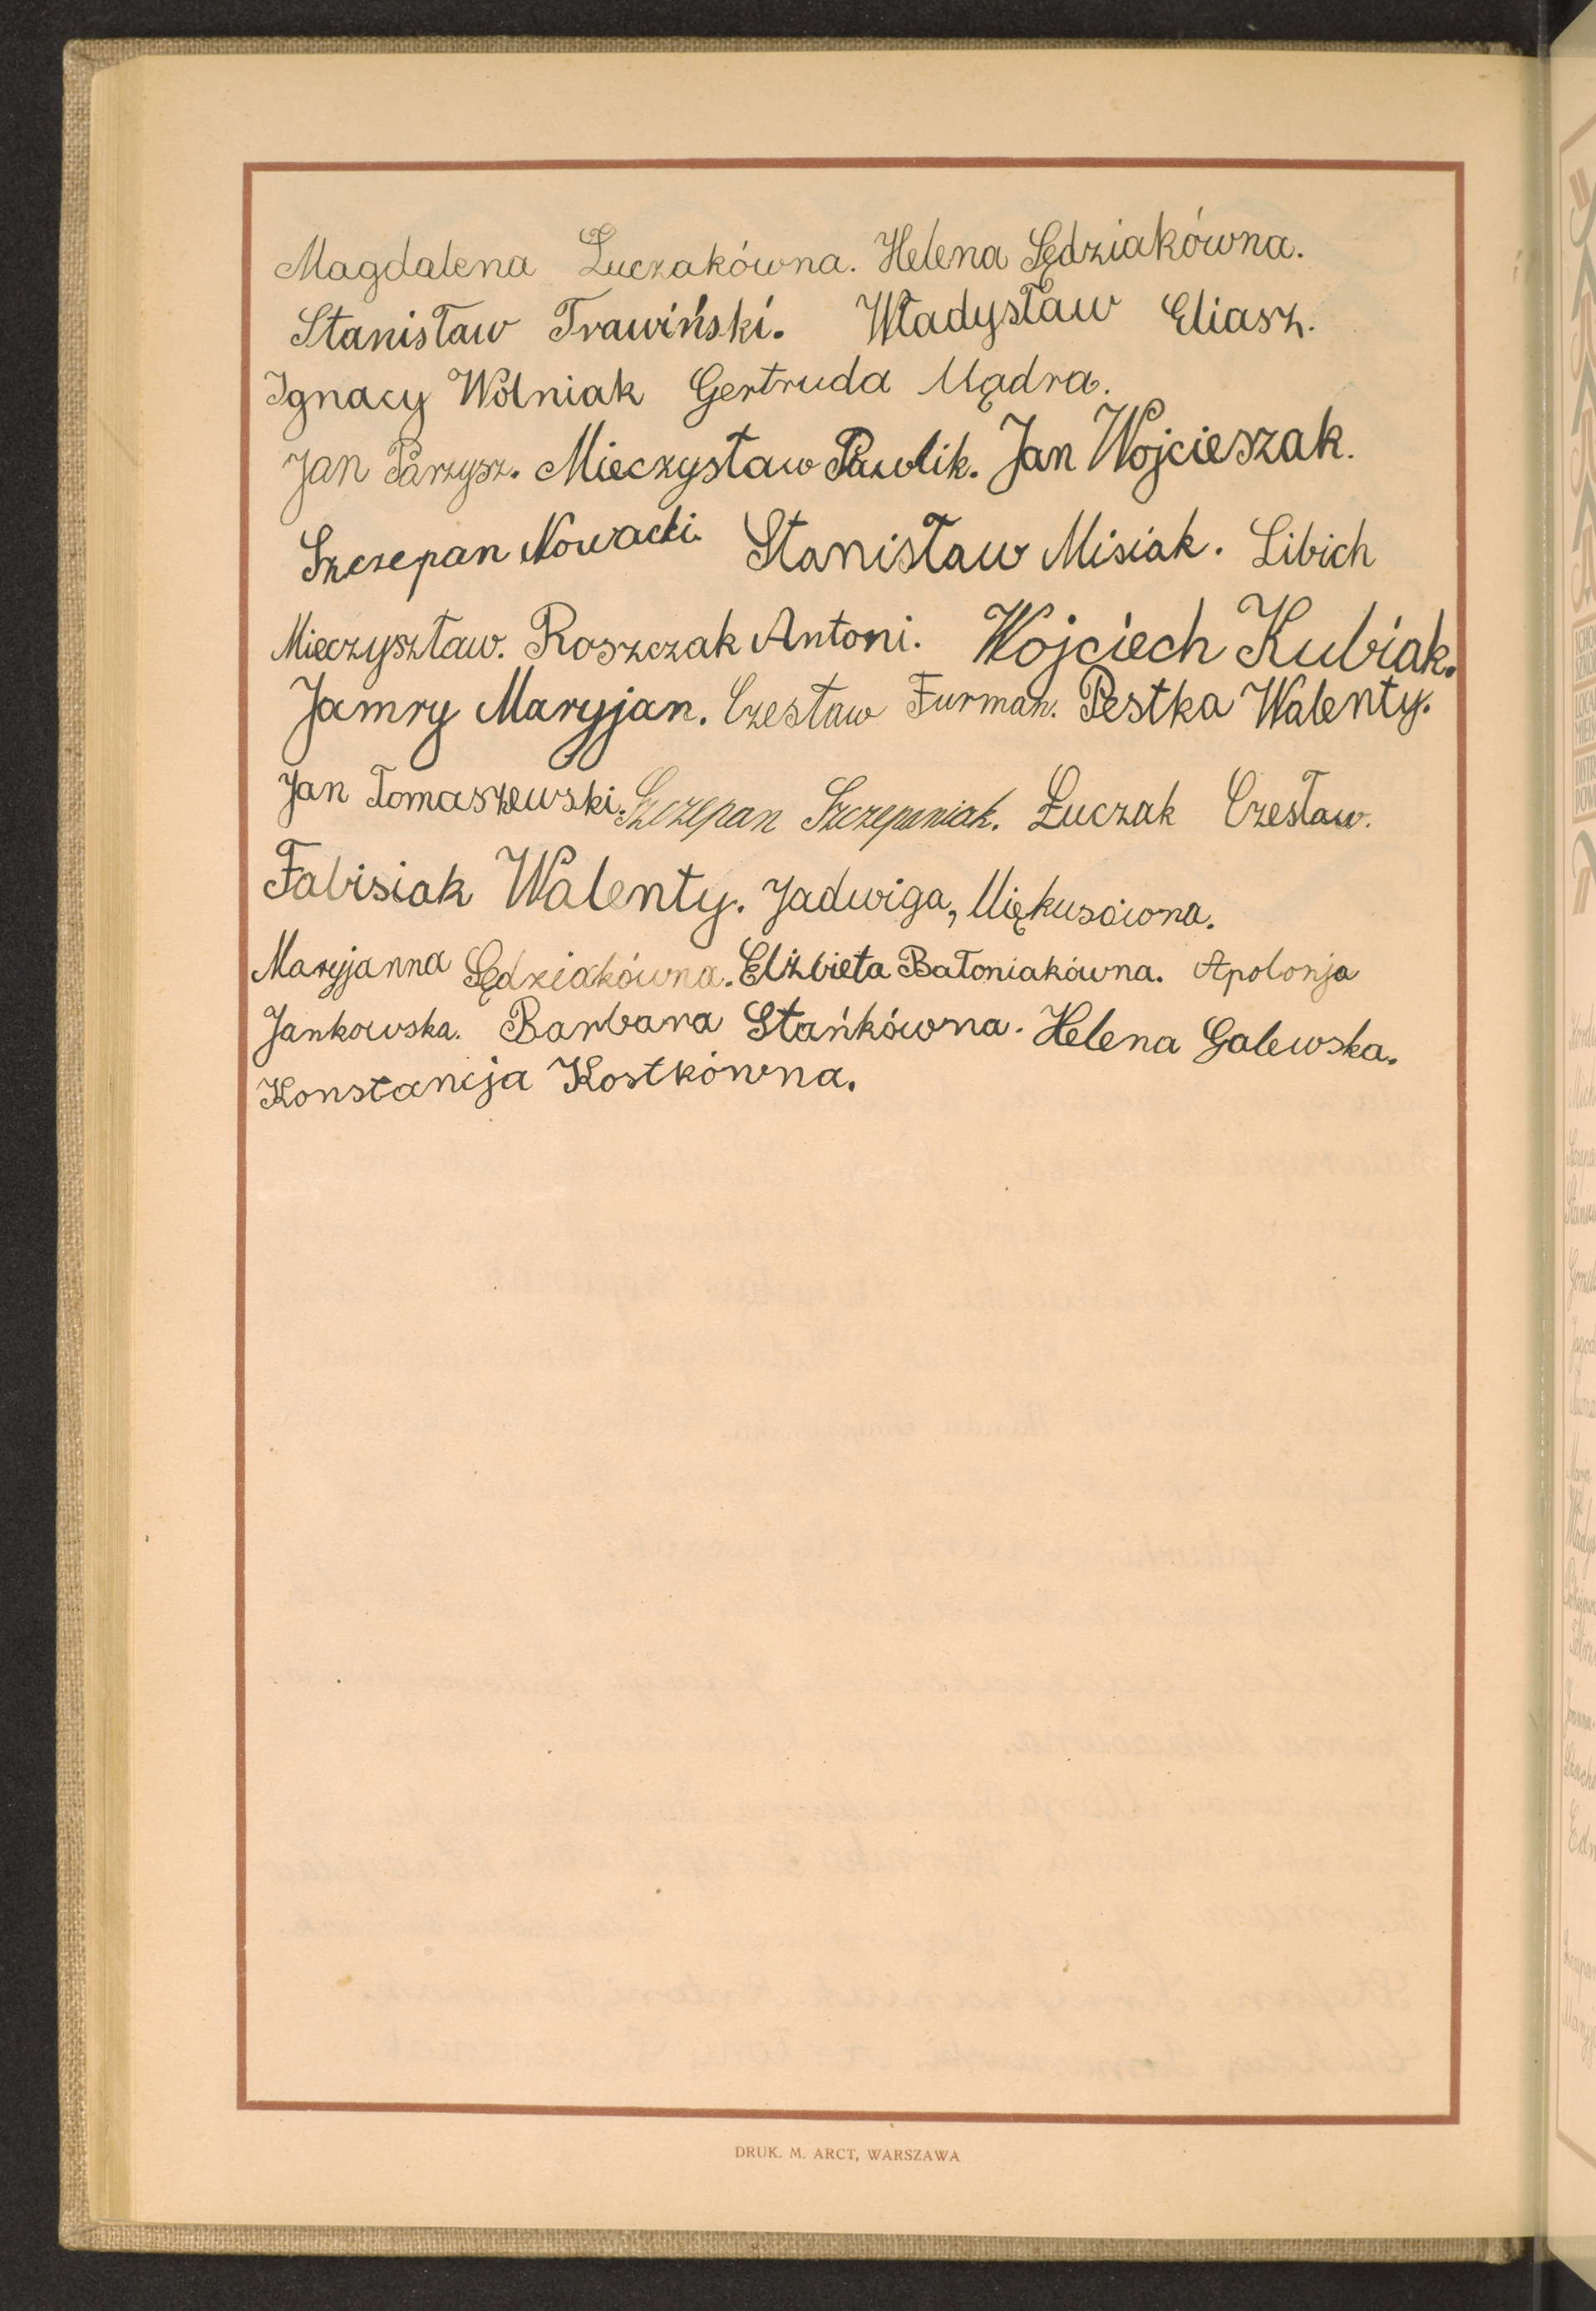 Magdalena Łuczakówna. Helena Sędziakówna.
Stanisław Trawiński. Władysław Eliasz.
Ignacy Wolniak Gertruda Mądra.
Jan Parzysz. Mieczysław Pawlik. Jan Wojcieszak.
Szczepan Nowacki. Stanisław Misiak. Libich
Mieczyszław. Roszczak Antoni. Wojciech Kubiak.
Jamry Maryjan. Czesław Furman. Pestka Walenty.
Jan Tomaszewski. Szczepan Szczepaniak. Łuczak Czesław.
Fabisiak Walenty. Jadwiga, Miękusówna.
Maryjanna Sędziakówna. Elżbieta Batoniakówna. Apolonja
Jankowska. Barbara Stańkówna. Helena Galewska.
Konstancja Kostkówna.
DRUK. M. ARCT, WARSZAWA